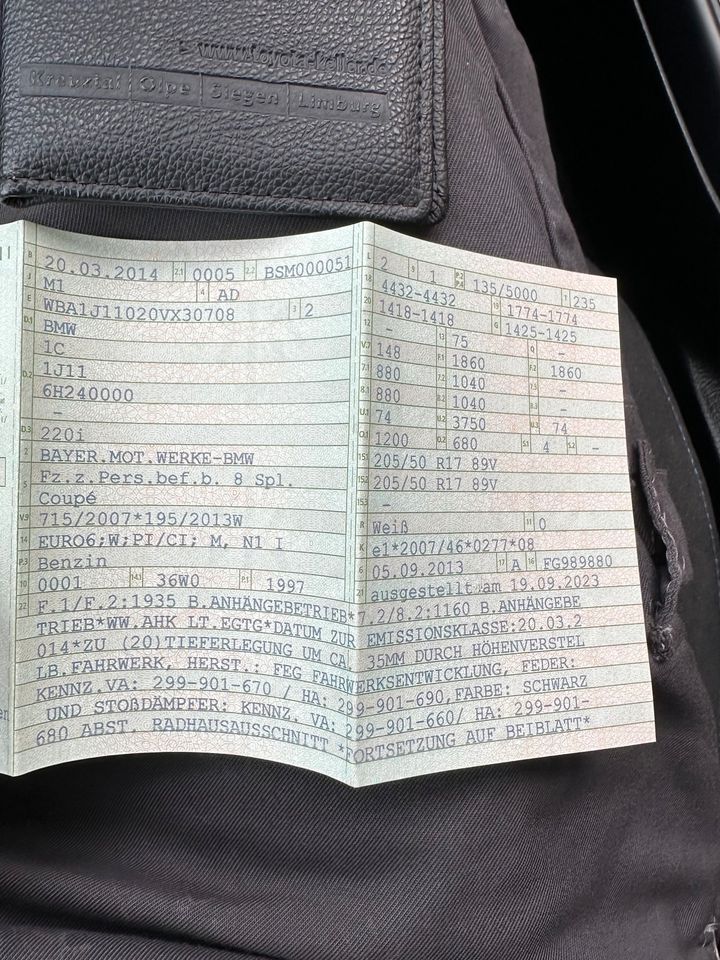 www.toyota-keller.de
Kreuztal | Olpe | Siegen | Limburg
B 20.03.2014 2.1 0005 2.2 BSM000051
J M1 4 AD
E WBA1J11020VX30708 3 2
D.1 BMW
1C
D.2 1J11
6H240000
–
D.3 220i
2 BAYER.MOT.WERKE-BMW
5 Fz.z.Pers.bef.b. 8 Spl.
Coupé
V.9 715/2007*195/2013W
14 EURO6;W;PI/CI; M, N1 I
P.3 Benzin
10 0001 14.1 36W0 P.1 1997
L 2 9 1 P.2 P.4 135/5000 T 235
18 4432-4432 19 1774-1774
20 1418-1418 G 1425-1425
12 – 13 75 Q –
V.7 148 F.1 1860 F.2 1860
7.1 880 7.2 1040 7.3 –
8.1 880 8.2 1040 8.3 –
U.1 74 U.2 3750 U.3 74
O.1 1200 O.2 680 S.1 4 S.2 –
15.1 205/50 R17 89V
15.2 205/50 R17 89V
15.3 –
R Weiß 11 0
K e1*2007/46*0277*08
6 05.09.2013 17 A 16 FG989880
21 ausgestellt am 19.09.2023
22 F.1/F.2:1935 B.ANHÄNGEBETRIEB*7.2/8.2:1160 B.ANHÄNGEBE
TRIEB*WW.AHK LT.EGTG*DATUM ZUR EMISSIONSKLASSE:20.03.2
014*ZU (20)TIEFERLEGUNG UM CA. 35MM DURCH HÖHENVERSTEL
LB.FAHRWERK, HERST.: FEG FAHRWERKSENTWICKLUNG, FEDER:
KENNZ.VA: 299-901-670 / HA: 299-901-690,FARBE: SCHWARZ
UND STOßDÄMPFER: KENNZ. VA: 299-901-660/ HA: 299-901-
680 ABST. RADHAUSAUSSCHNITT *FORTSETZUNG AUF BEIBLATT*